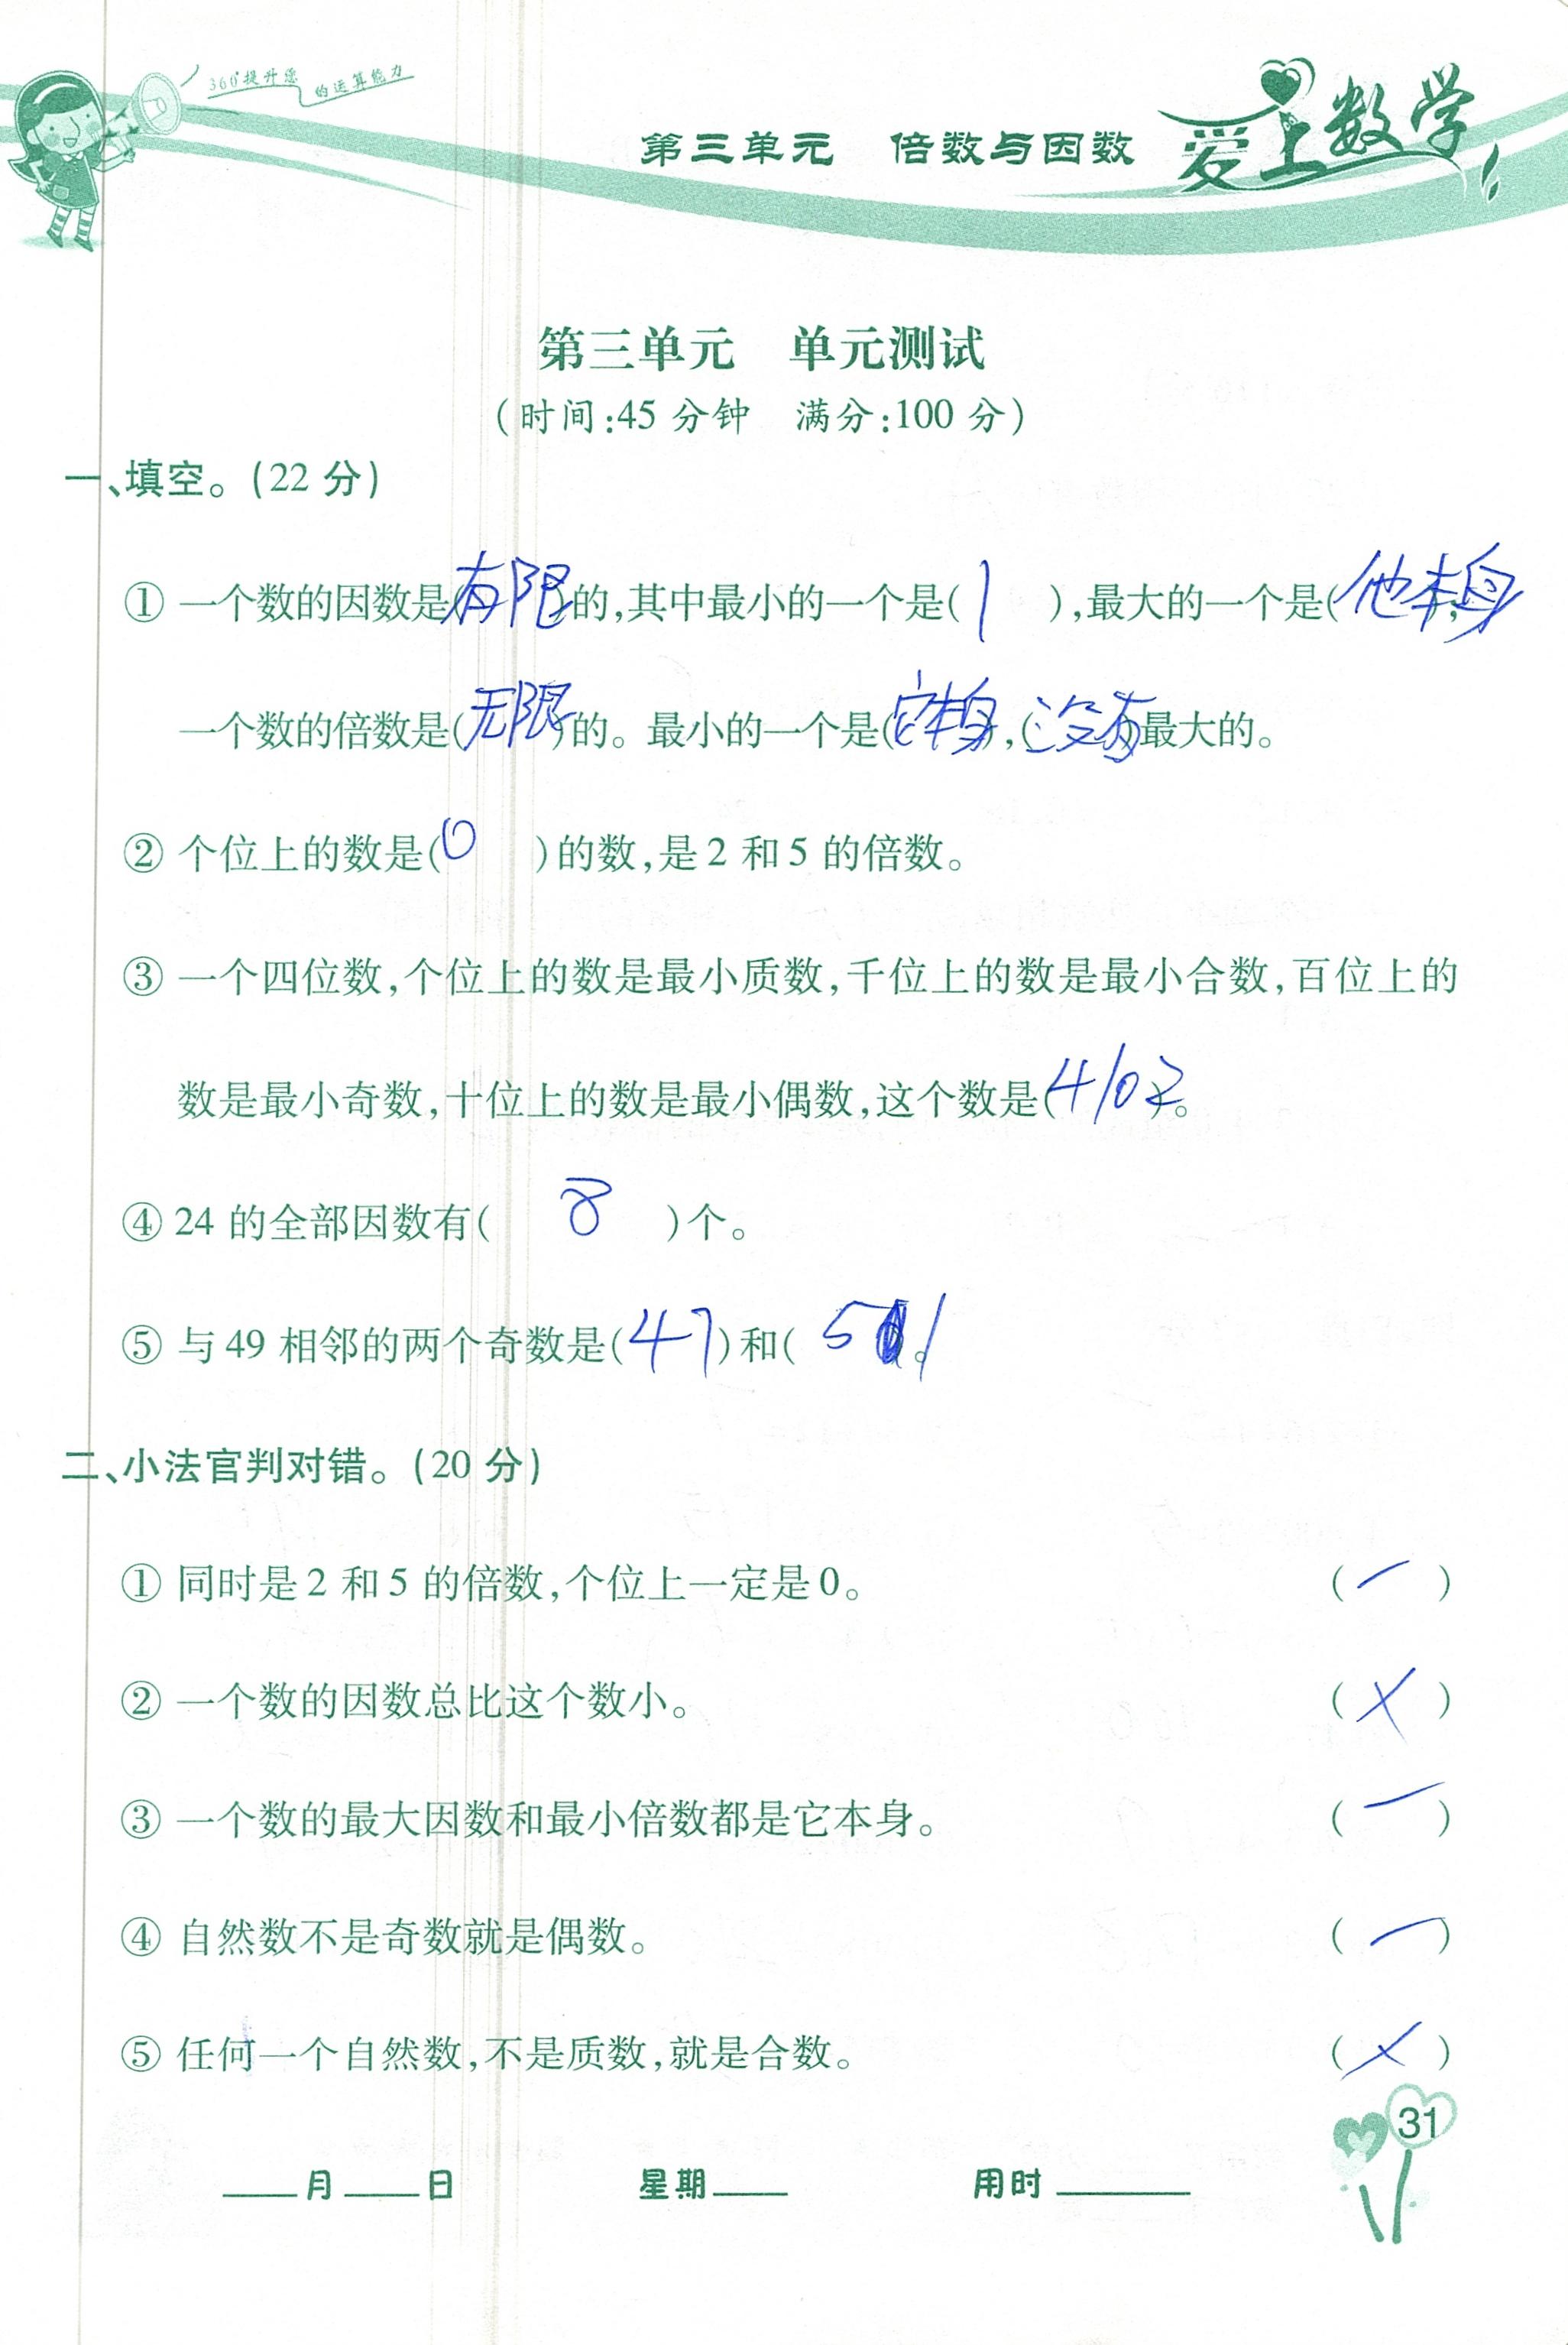 360°提升您的运算能力
第三单元 倍数与因数 爱上数学
第三单元 单元测试
(时间:45 分钟 满分:100 分)
一、填空。(22 分)
① 一个数的因数是(有限)的,其中最小的一个是(1),最大的一个是(他本身),
一个数的倍数是(无限)的。最小的一个是(它本身),(没有)最大的。
② 个位上的数是(0)的数,是 2 和 5 的倍数。
③ 一个四位数,个位上的数是最小质数,千位上的数是最小合数,百位上的
数是最小奇数,十位上的数是最小偶数,这个数是(4102)。
④ 24 的全部因数有(8)个。
⑤ 与 49 相邻的两个奇数是(47)和(51)。
二、小法官判对错。(20 分)
① 同时是 2 和 5 的倍数,个位上一定是 0。 (一)
② 一个数的因数总比这个数小。 (×)
③ 一个数的最大因数和最小倍数都是它本身。 (一)
④ 自然数不是奇数就是偶数。 (一)
⑤ 任何一个自然数,不是质数,就是合数。 (×)
31
____月____日 星期____ 用时______